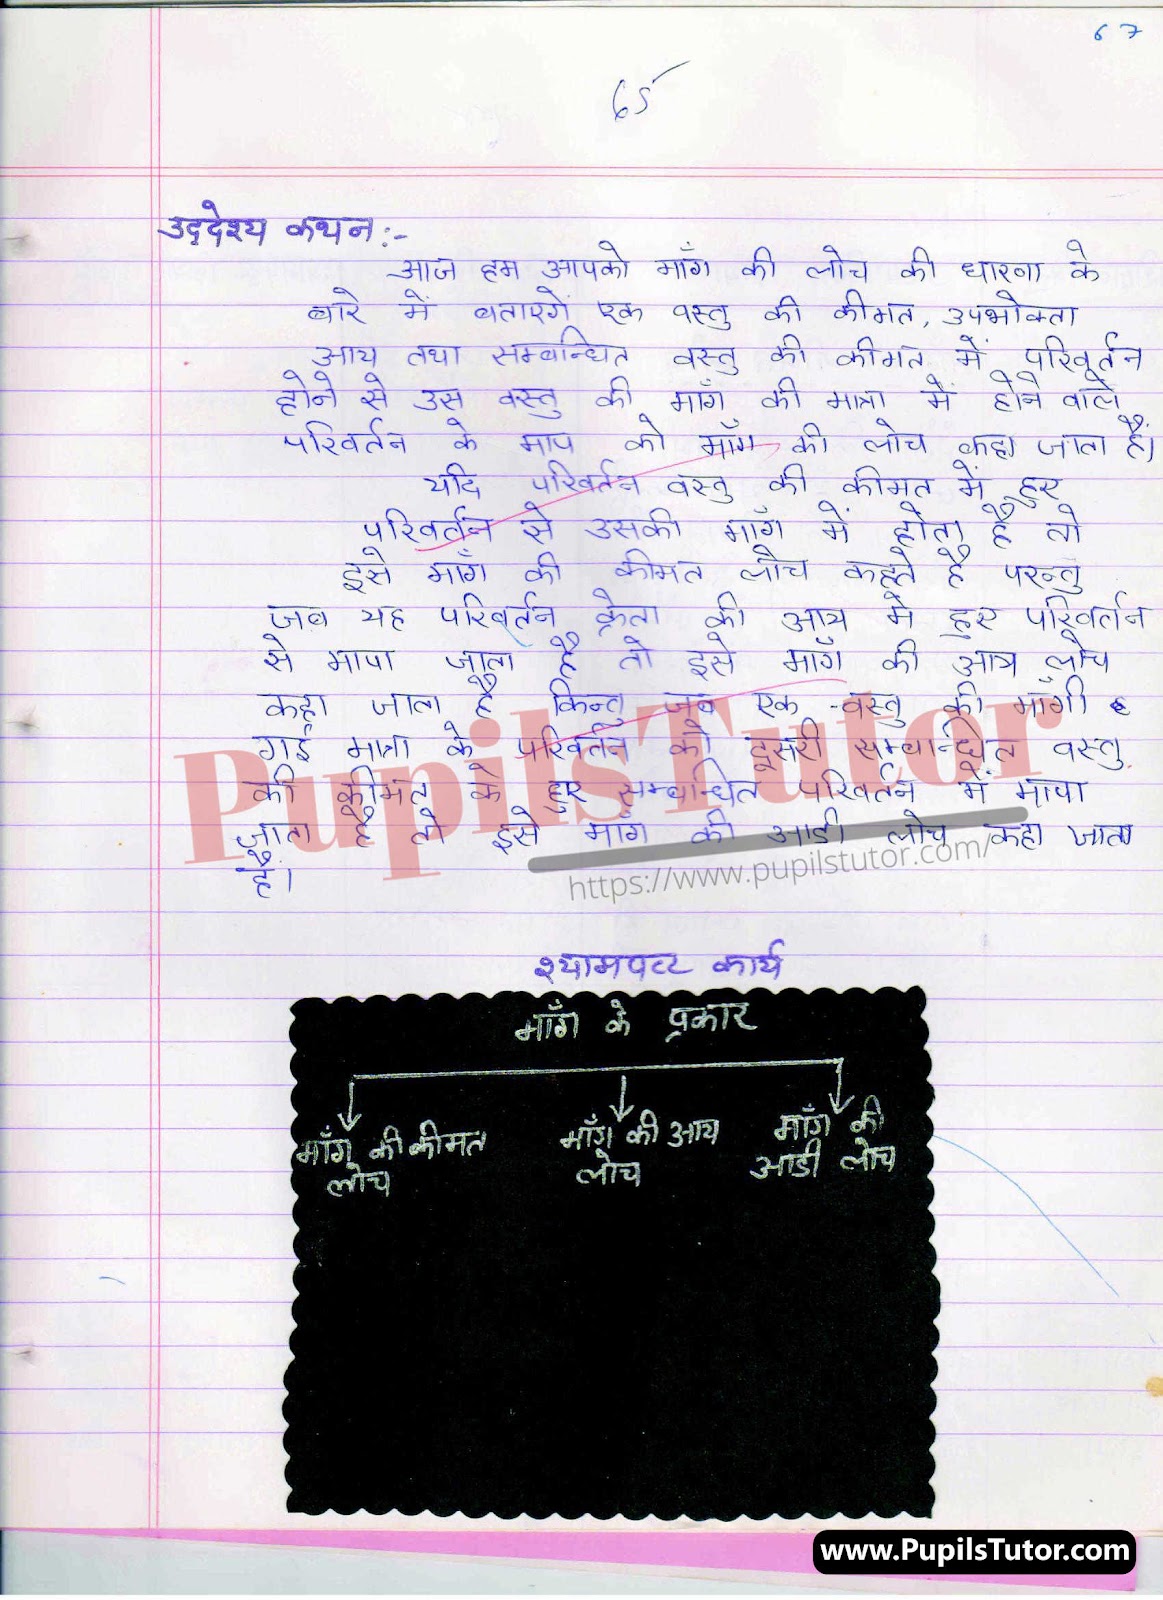 67
65
उद्देश्य कथन:-
आज हम आपको माँग की लोच की धारणा के
बारे में बताएगें एक वस्तु की कीमत, उपभोक्ता
आय तथा सम्बन्धित वस्तु की कीमत में परिवर्तन
होने से उस वस्तु की माँग की मात्रा में होने वाले
परिवर्तन के माप को माँग की लोच कहा जाता है।
यदि परिवर्तन वस्तु की कीमत में हुए
परिवर्तन से उसकी माँग में होता है तो
इसे माँग की कीमत लोच कहते है परन्तु
जब यह परिवर्तन क्रेता की आय मे हुए परिवर्तन
से मापा जाता है तो इसे माँग की आय लोच
कहा जाता है किन्तु जब एक वस्तु की माँगी
गई मात्रा के परिवर्तन को दूसरी सम्बान्धित वस्तु
की कीमत के हुए सम्बन्धित परिवर्तन में मापा
जाता है तो इसे माँग की आडी लोच कहा जाता
है।
PupilsTutor
https://www.pupilstutor.com/
श्यामपट्ट कार्य
माँग के प्रकार
माँग की कीमत लोच
माँग की आय लोच
माँग की आडी लोच
www.PupilsTutor.com